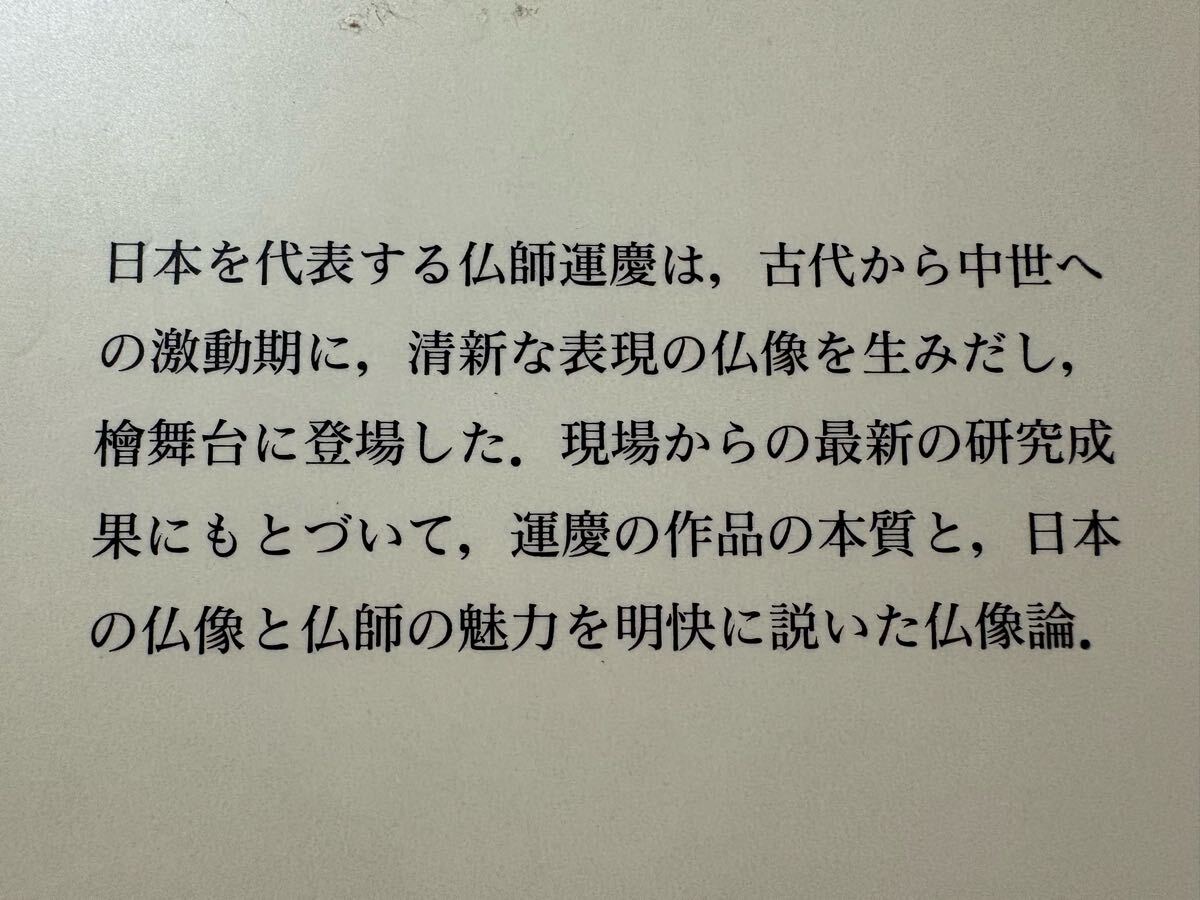 日本を代表する仏師運慶は，古代から中世へ
の激動期に，清新な表現の仏像を生みだし，
檜舞台に登場した．現場からの最新の研究成
果にもとづいて，運慶の作品の本質と，日本
の仏像と仏師の魅力を明快に説いた仏像論．